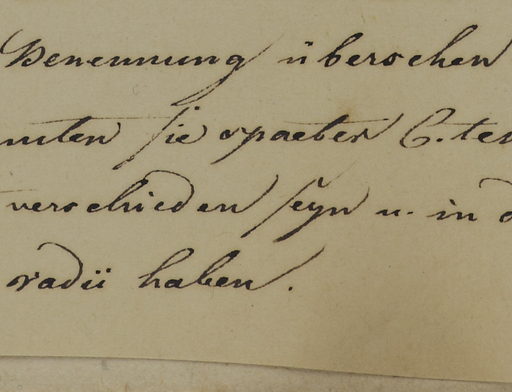 Benennung übersehen
nnten sie spaeter C. ten
verschieden seyn u. in d
radii haben.